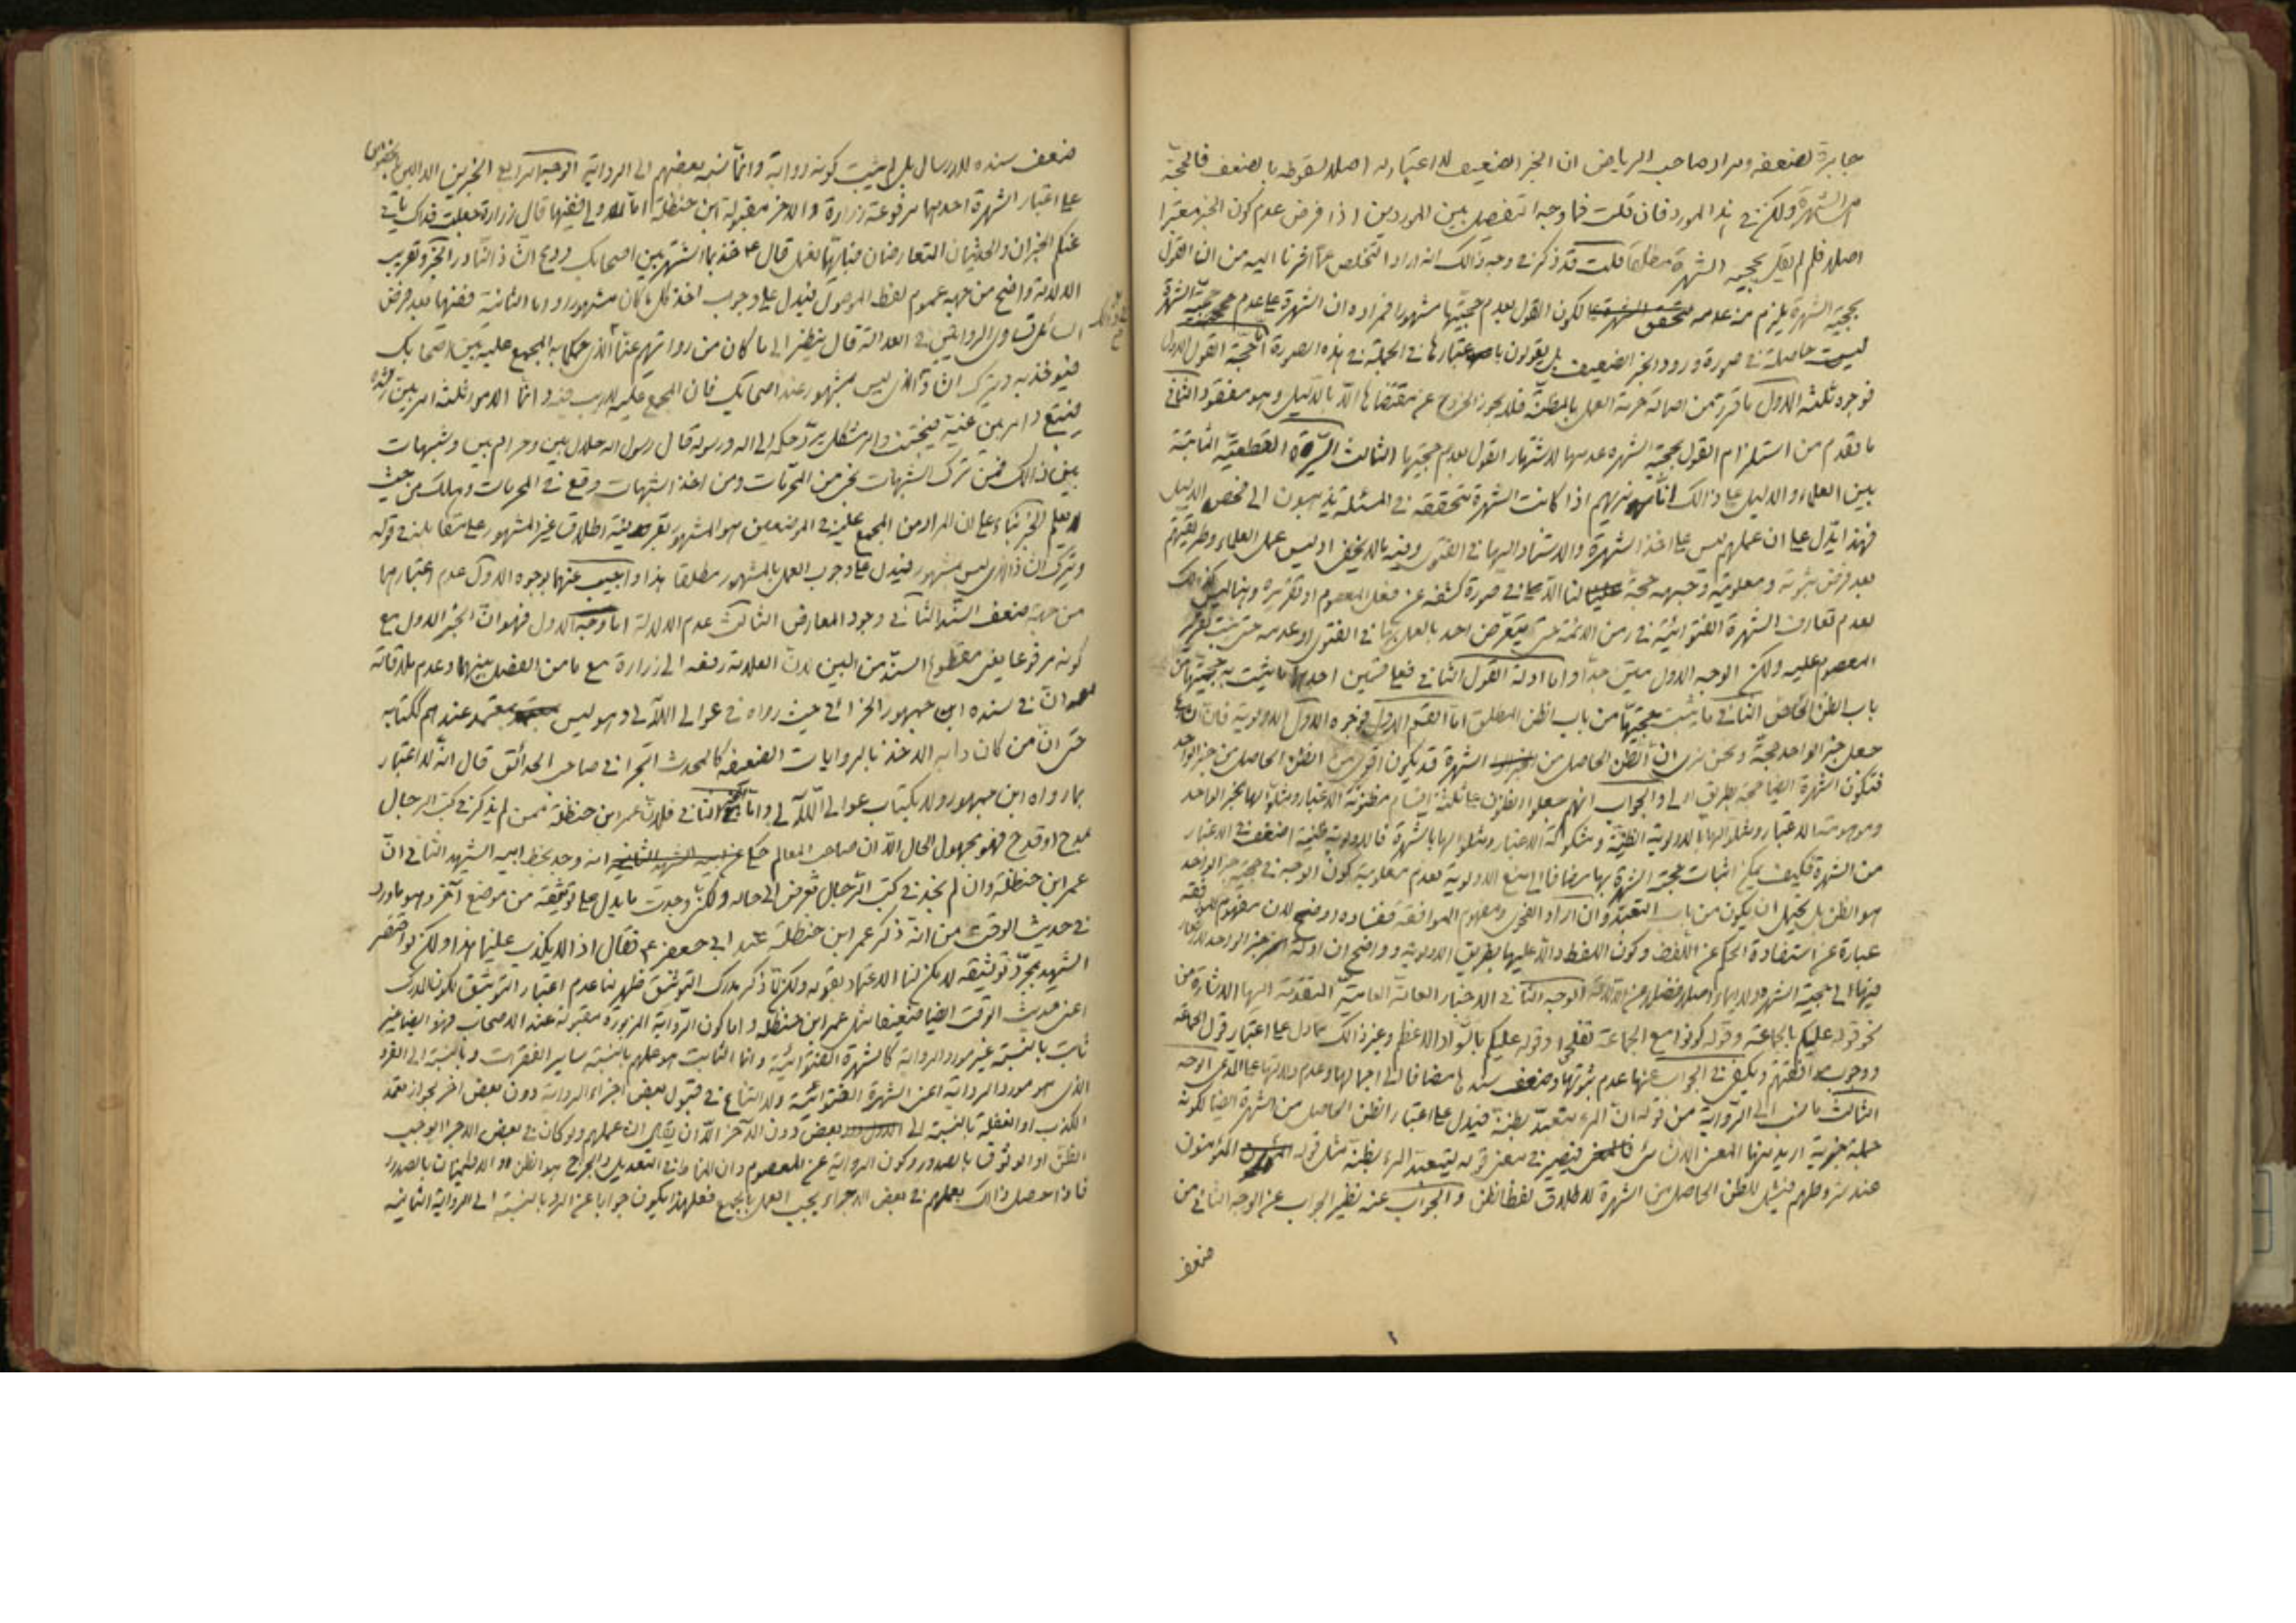 جابرة لضعفه ومراد صاحب الرياض ان الخبر الضعيف لا اعتبار له اصلا لسقوطه بالضعف فالحجّة
هى الشهرة ولكن فى هذا المورد فان قلت فما وجه التفصيل بين الموردين اذا فرض عدم كون الخبر معتبرا
اصلا فلم لم يقل بحجية الشهرة مطلقا قلت قد ذكر فى وجه ذالك انه اراد التخلص عما اشرنا اليه من ان القول
بحجية الشهرة يلزم منه عدمه لكون القول بعدم حجيتها مشهورا فمراده ان الشهرة على عدم حجية الشهرة
ليست حاصلة فى صورة ورود الخبر الضعيف بل يقولون باعتبارها فى الجملة فى هذه الصورة حجة القول الاول
فوجوه ثلثة الاول ما قرر من اصالة حرمة العمل بالمظنة فلا يجوز الخروج عن مقتضاها الا بالدليل وهو مفقود الثانى
ما تقدم من استلزام القول بحجية الشهرة عدمها لاشتهار القول بعدم حجيتها الثالث السيرة القطعية الثابتة
بين العلماء والدليل على ذالك انا نريهم اذا كانت الشهرة متحققة فى المسئلة يذهبون الى فحص الدليل
فهذا يدل على ان عملهم ليس على اخذ الشهرة والاستناد اليها فى الفتوى وفيه ما لا يخفى اذ ليس عمل العلماء وطريقتهم
بعد فرض ثبوته ومعلومية وجهه حجة لنا الا فى صورة كشفه عن فعل المعصوم او تقريره وهنا ليس كذالك
لعدم تعارف الشهرة الفتوائية فى زمن الائمة حتى يتعرض احد بالعمل بها فى الفتوى او عدمه حتى يثبت تقرير
المعصوم عليه ولكن الوجه الاول متين جدا واما ادلة القول الثانى فعلى قسمين احدها ما يثبت به حجيتها من
باب الظن الخاص الثانى ما يثبت حجيتها من باب الظن المطلق اما القسم الاول فوجوه الاول الاولوية فان الشارع
جعل خبر الواحد حجة ونحن نرى ان الظن الحاصل من الشهرة قد يكون اقوى من الظن الحاصل من خبر الواحد
فتكون الشهرة ايضا حجة بطريق اولى والجواب انهم جعلوا الظنون على ثلثة اقسام مظنونة الاعتبار ومثلوا لها بخبر الواحد
وموهومة الاعتبار ومثلوا لها بالاولوية الظنية ومشكوكة الاعتبار ومثلوا لها بالشهرة فالاولوية ظنية اضعف فى الاعتبار
من الشهرة فكيف يمكن اثبات حجية الشهرة بها مضافا الى منع الاولوية لعدم معلومية كون الوجه فى حجية خبر الواحد
هو الظن بل يحتمل ان يكون من باب التعبد وان اراد الفحوى ومفهوم الموافقة ففساده اوضح لان مفهوم الموافقة
عبارة عن استفادة الحكم عن اللفظ وكون اللفظ دالا عليها بطريق الاولوية وواضح ان ادلة خبر الواحد لا اشعار
فيها الى حجية الشهرة ولا ايماء اصلا فضلا عن الدلالة الوجه الثانى الاخبار العامة المتقدمة اليها الاشارة من
نحو قوله عليكم بالجماعة وقوله كونوا مع الجماعة تفلحوا وقوله عليكم بالسواد الاعظم وغير ذالك مما دل على اعتبار قول الجماعة
ووجوب ويكفى فى الجواب عنها عدم ثبوتها وضعف سندها مضافا الى اجمالها وعدم دلالتها على المدعى الوجه
الثالث ما الرواية من قوله ان المرء متعبد بظنه فيدل على اعتبار الظن الحاصل من الشهرة ايضا لكونه
جملة خبرية اريد منها المعنى الانشائى فيصير فى معنى قوله ليتعبد المرء بظنه مثل قوله المؤمنون
عند شروطهم فيشمل للظن الحاصل من الشهرة لاطلاق لفظ الظن والجواب عنه نظير الجواب عن الوجه الثانى من
ضعف
ضعف سنده للارسال بل لم يثبت كونه رواية وانما نسبه بعضهم الى الرواية الوجه الرابع الخبرين الدالين بالخصوص
على اعتبار الشهرة احدهما مرفوعة زرارة والاخر مقبولة ابن حنظلة اما الاولى ففيها قال زرارة جعلت فداك ياتى
عنكم الخبران والحديثان المتعارضان فبايهما نعمل قال ع خذ بما اشتهر بين اصحابك ودع الشاذ النادر الخبر وتقريب
الدلالة واضح من جهة عموم لفظ الموصول فيدل على وجوب اخذ كل ما كان مشهورا واما الثانية ففيها بعد فرض
السائل تساوى الراويين فى العدالة قال ينظر الى ما كان من روايتهم عنا الذى حكما به المجمع عليه بين اصحابك
فيؤخذ به ويترك الشاذ الذى ليس بمشهور عند اصحابك فان المجمع عليه لا ريب فيه وانما الامور ثلثة امر بين رشده
فيتبع وامر بين غيه فيجتنب وامر مشكل يرد حكمه الى اله ورسوله قال رسول اله حلال بين وحرام بين وشبهات
بين ذالك فمن ترك الشبهات نجى من المحرمات ومن اخذ الشبهات وقع فى المحرمات وهلك من حيث
لا يعلم الخبر بناء على ان المراد من المجمع عليه فى الموضعين هو المشهور بقرينة اطلاق غير المشهور على مقابله فى قوله
ويترك الشاذ الذى ليس بمشهور فيدل على وجوب العمل بالمشهور مطلقا هذا واجيب عنهما بوجوه الاول عدم اعتبارهما
من جهة ضعف السند الثانى وجود المعارض الثالث عدم الدلالة اما وجه الاول فهو ان الخبر الاول مع
كونه مرفوعا يعنى مقطوع السند من البين لان العلامة رفعه الى زرارة مع ما من الفصل بينهما وعدم ملاقاته
ان فى سنده ابن جمهور حيث رواه فى عوالى اللآلى وهو ليس بمعتمد عندهم لكتابه
حتى ان من كان دابه الاخذ بالروايات الضعيفة كالمحدث البحرانى صاحب الحدائق قال انه لا اعتبار
بما رواه ابن جمهور ولا بكتاب عوالى اللآلى واما الثانى فلان عمر ابن حنظلة ممن لم يذكر فى كتب الرجال
بمدح او قدح فهو مجهول الحال الا ان صاحب المعالم حكى انه وجد بخط ابيه الشهيد الثانى ان
عمر ابن حنظلة وان لم نجد فى كتب الرجال تعرض الى حاله ولكن وجدت ما يدل على توثيقه من موضع آخر وهو ما ورد
فى حديث الوقت من انه ذكر عمر ابن حنظلة عند ابى جعفر ع فقال اذا لا يكذب علينا هذا ولكن لو اقتصر
الشهيد بمجرد توثيقه لامكن لنا الاعتماد بقوله ولكن لما ذكر مدرك التوثيق ظهر لنا عدم اعتبار التوثيق لكون المدرك
اعنى حديث الوقت ايضا ضعيفا مثل عمر ابن حنظلة واما كون الرواية المزبورة مقبولة عند الاصحاب فهو ايضا غير
ثابت بالنسبة غير مورد الرواية كالشهرة الفتوائية وانما الثابت هو عملهم بالنسبة ساير الفقرات وبالنسبة الى الفرد
الذى هو مورد الرواية اعنى الشهرة الفتوائية ولا امتناع فى قبول بعض اجزاء الرواية دون بعض آخر لجواز تعمد
الكذب او الغفلة بالنسبة الى بعض دون الآخر الا ان يقال ان عملهم ولو كان فى بعض الاجزاء يوجب
الظن او الوثوق بالصدور وكون الرواية عن المعصوم وان المناط فى التعديل والجرح هو الظن والاطمينان بالصدور
فاذا حصل ذالك بعملهم فى بعض الاجزاء يجب العمل بالجميع فعلهذا يكون جوابا عن الرد بالنسبة الى الرواية الثانية